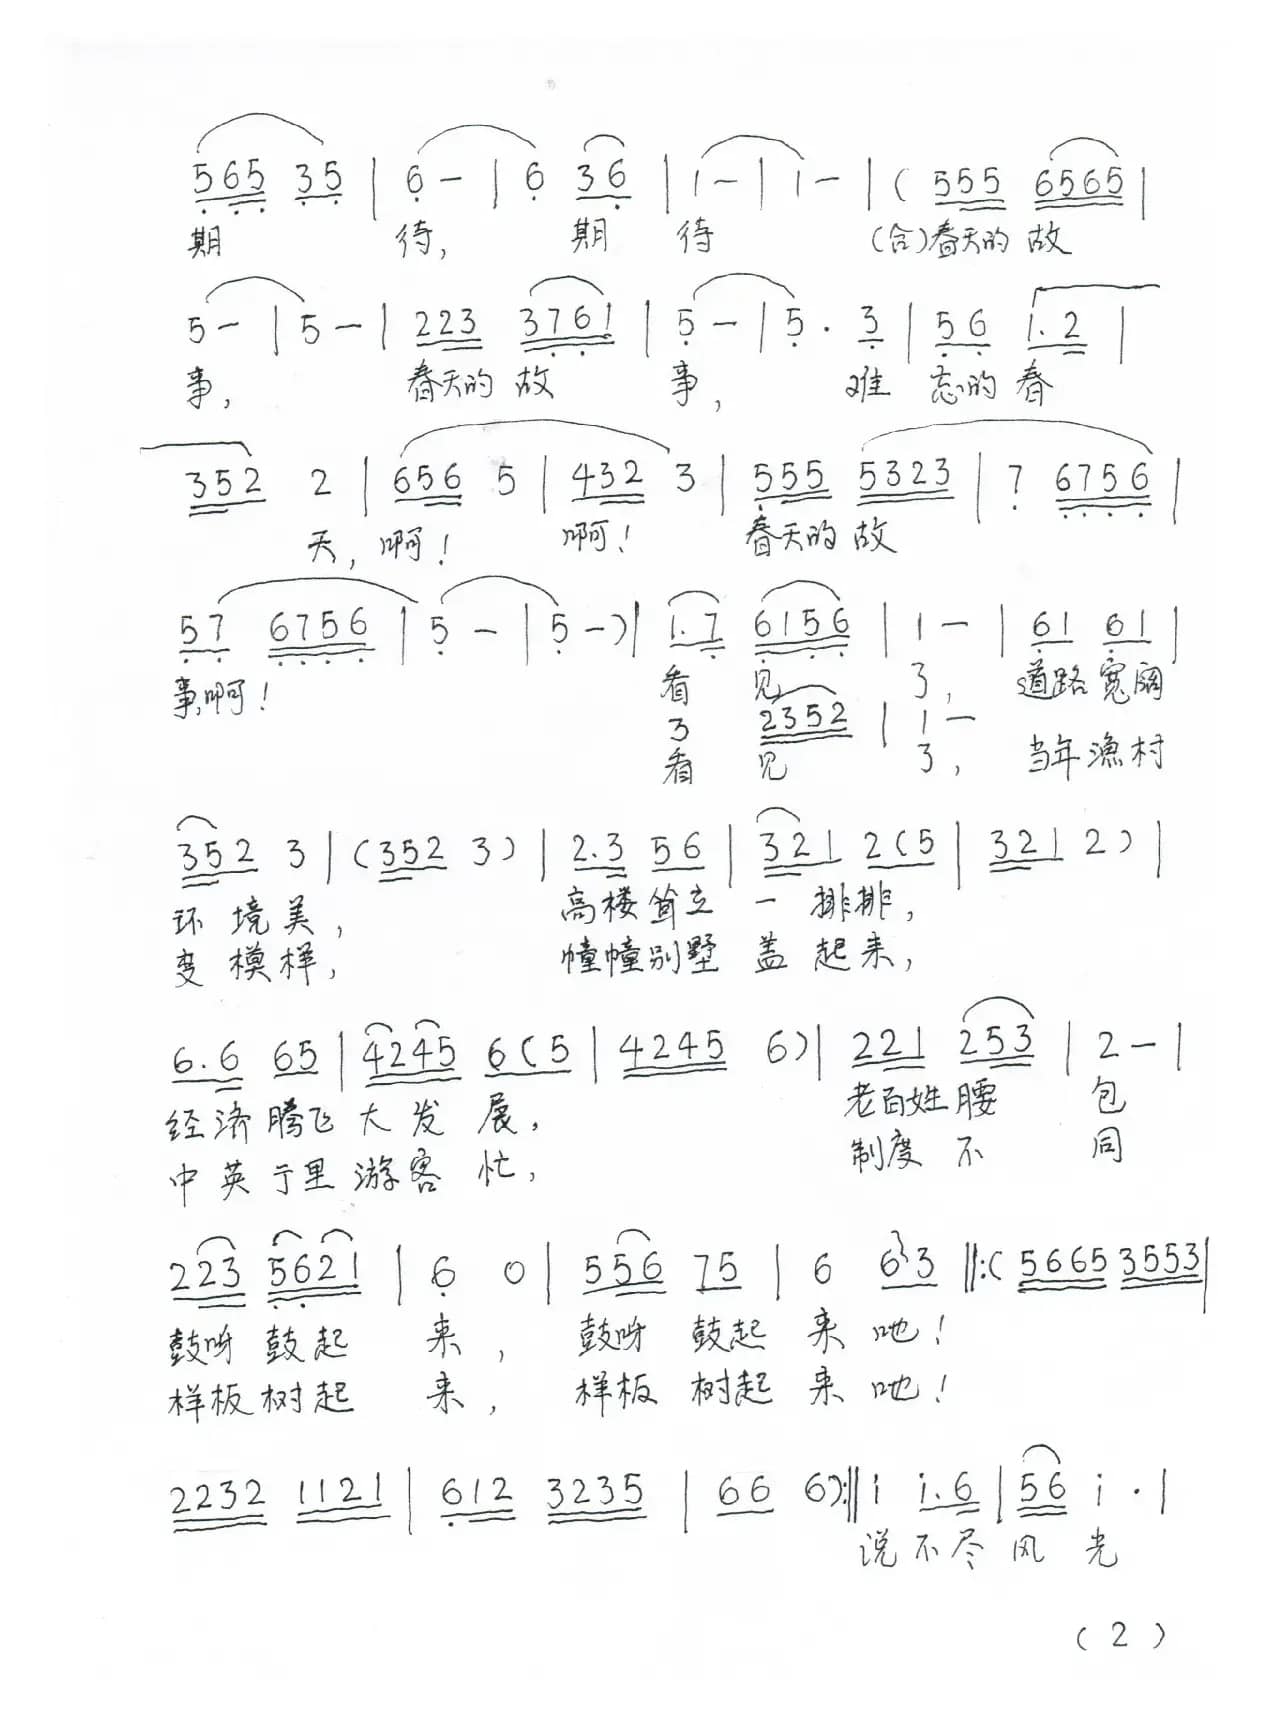 565 35 | 6 - | 6 36 | 1 - | 1 - | ( 555 6565 |
期 待, 期 待 (合)春天的 故
5 - | 5 - | 223 3761 | 5 - | 5 · 3 | 56 1.2 |
事, 春天的 故 事, 难 忘的 春
352 2 | 656 5 | 432 3 | 555 5323 | 7 6756 |
天, 啊! 啊! 春天的 故
57 6756 | 5 - | 5 - ) | 1.7 6156 | 1 - | 61 61 |
事,啊! 看 见 了, 道路 宽阔
3 2352 | 1 -
看 见 了, 当年 渔村
352 3 | ( 352 3 ) | 2.3 56 | 321 2(5 | 321 2 ) |
环 境 美, 高楼 耸立 一 排排,
变 模样, 幢幢别墅 盖 起来,
6.6 65 | 4245 6(5 | 4245 6 ) | 221 253 | 2 - |
经济 腾飞 大 发 展, 老百姓 腰 包
中英 于里 游客 忙, 制度 不 同
223 5621 | 6 0 | 556 75 | 6 63 ‖:( 5665 3553 |
鼓呀 鼓起 来, 鼓呀 鼓起 来 吔!
样板 树起 来, 样板 树起 来 吔!
2232 1121 | 612 3235 | 66 6):‖ i i.6 | 56 i · |
说 不尽 风 光
( 2 )